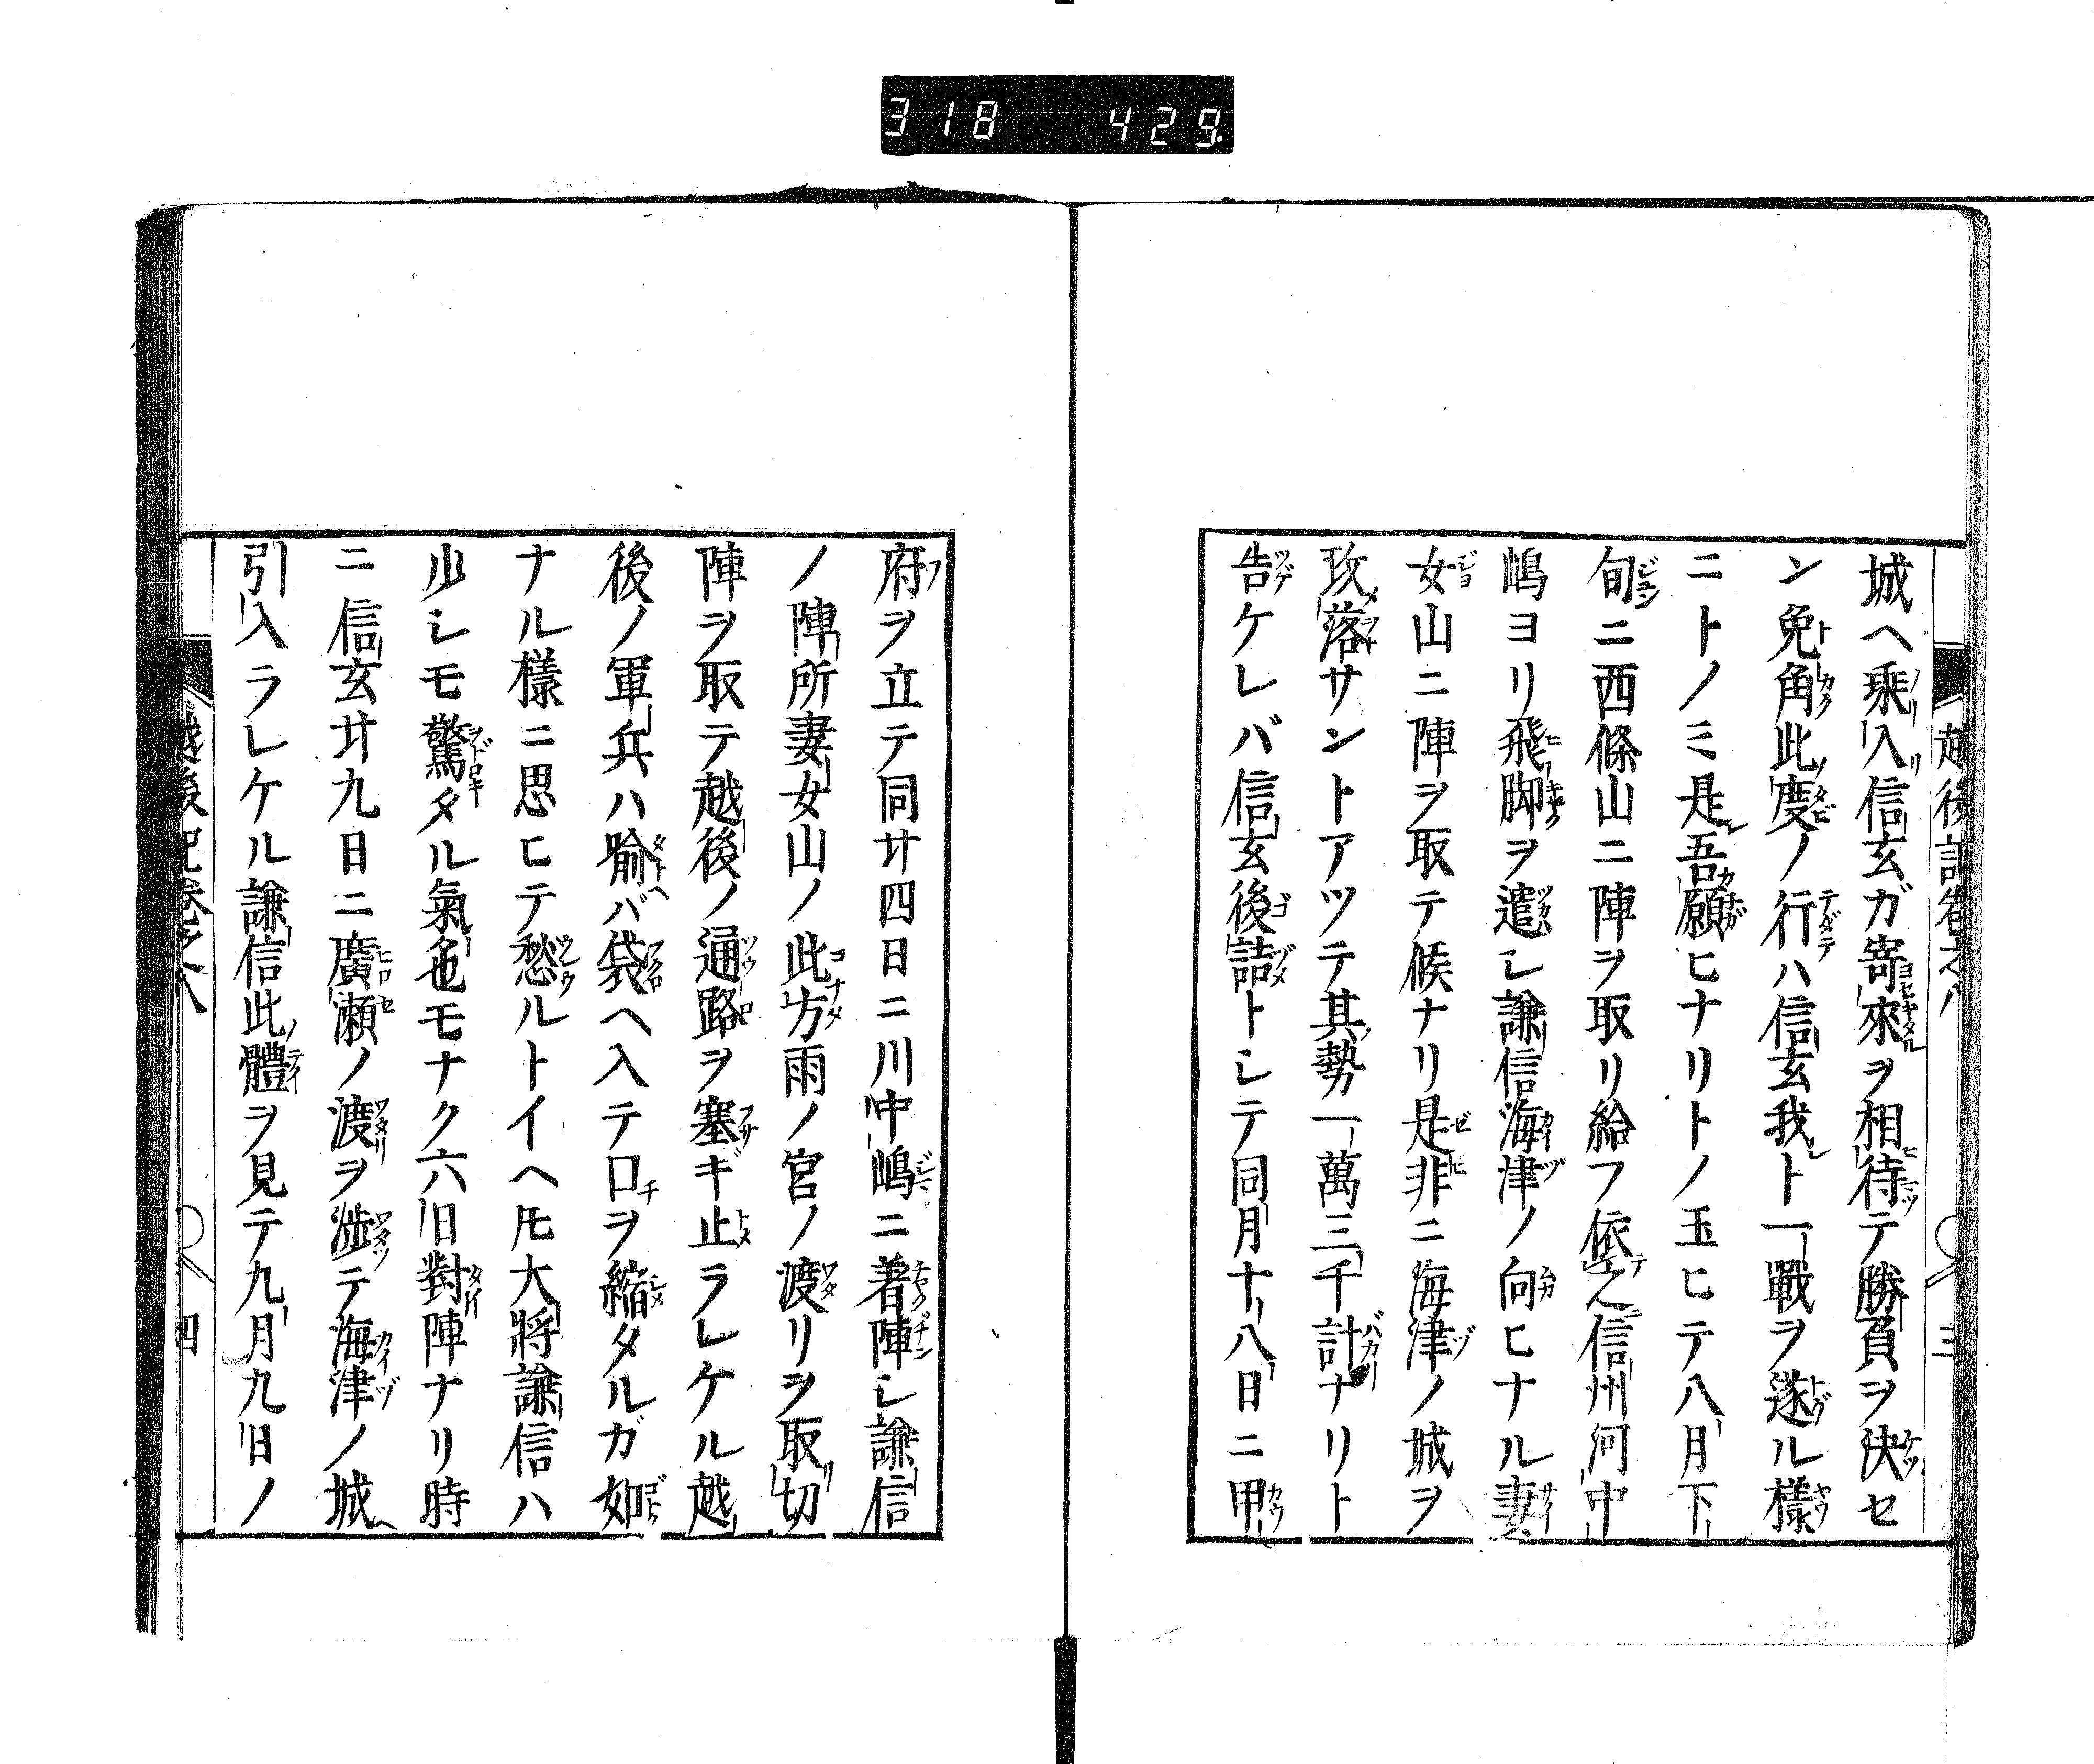 318 429
越後記卷之八 三
城ヘ乗入信玄ガ寄來ヲ相待テ勝負ヲ決セ
ン兔角此度ノ行ハ信玄我ト一戰ヲ遂ル樣
ニトノミ是吾願ヒナリトノ玉ヒテ八月下
旬ニ西條山ニ陣ヲ取リ給フ依之信州河中
嶋ヨリ飛脚ヲ遣シ謙信海津ノ向ヒナル妻
女山ニ陣ヲ取テ候ナリ是非ニ海津ノ城ヲ
攻落サントアツテ其勢一萬三千計ナリト
告ケレバ信玄後詰トシテ同月十八日ニ甲
府ヲ立テ同廿四日ニ川中嶋ニ著陣シ謙信
ノ陣所妻女山ノ此方雨ノ宮ノ渡リヲ取切
陣ヲ取テ越後ノ通路ヲ塞ギ止ラレケル越
後ノ軍兵ハ喩バ袋ヘ入テ口ヲ縮タルガ如
ナル樣ニ思ヒテ愁ルトイヘ𪜈大將謙信ハ
少シモ驚タル氣色モナク六日對陣ナリ時
ニ信玄廿九日ニ廣瀬ノ渡ヲ渉テ海津ノ城ヘ
引入ラレケル謙信此體ヲ見テ九月九日ノ
越後記卷之八 四